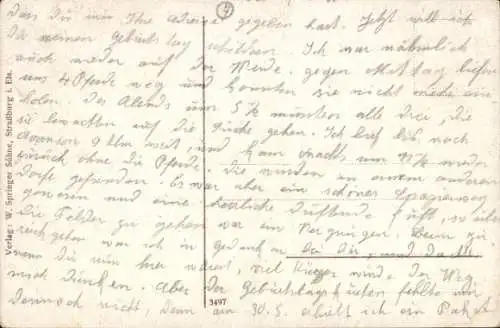 Das Du mir Ihre Adresse gegeben hast. Jetzt will ich
Dir meinen Geburtstag schildern. Ich war nähmlich
auch wieder auf der Weide. gegen Mittag liefen
uns 4 Pferde weg und konnten sie nicht mehr ein
holen. Des Abends um 5½ mussten alle drei die
sie bewachten auf die Suche gehen. Ich lief bis nach
9 klm weit, und kam Nachts um 11½ wieder
zurück ohne die Pferde. Sie wurden an einem anderen
Dorfe gefunden. Es war aber ein schöner Spaziergang
gewesen und eine herrliche duftende Luft, so über
die Felder zu gehen war ein Vergnügen. Wenn zu
reich gehn war ich in Gedanken bei Dir und dachte
wenn Du nun hier wärest, viel kürzer wird der Weg
mich dünken. Aber der Geburtstagskuchen fehlte mir
dennoch nicht, denn am 30.5. erhielt ich ein Paket
Verlag: W. Springer Söhne, Straßburg i. Els.
3497